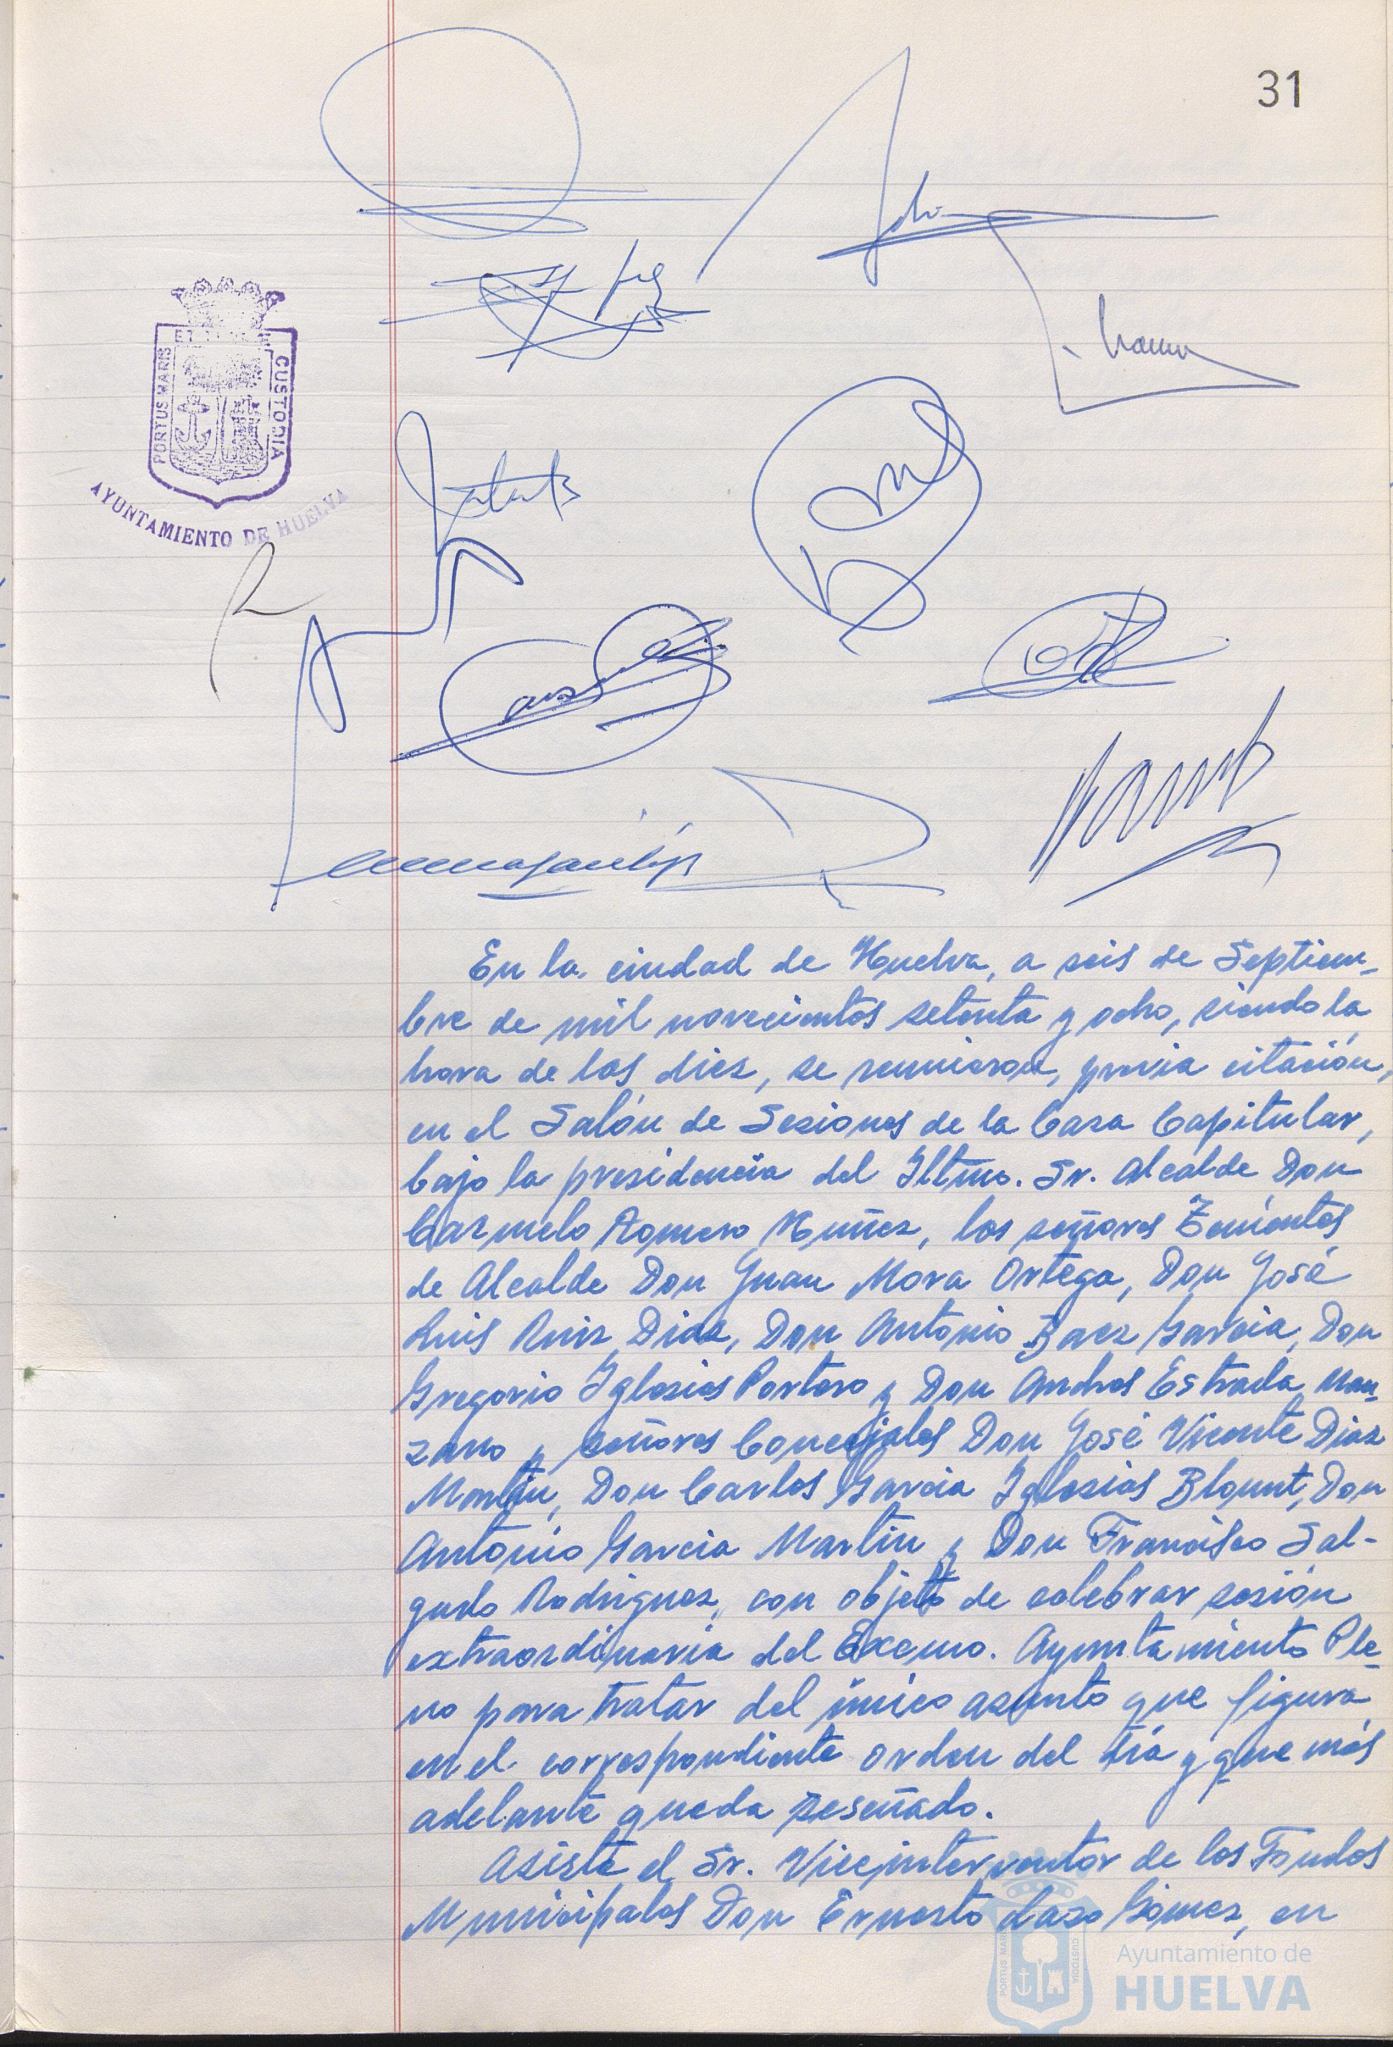 31
PORTUS MARIS
CUSTODIA
AYUNTAMIENTO DE HUELVA
En la ciudad de Huelva, a seis de Septiem-
bre de mil novecientos setenta y ocho, siendo la
hora de las diez, se reunieron, previa citación,
en el Salón de Sesiones de la Casa Capitular,
bajo la presidencia del Iltmo. Sr. Alcalde Don
Carmelo Romero Núñez, los señores Tenientes
de Alcalde Don Juan Mora Ortega, Don José
Luis Ruiz Diaz, Don Antonio Baez Garcia, Don
Gregorio Iglesias Portero y Don Andres Estrada Man-
zano y señores Concejales Don José Vicente Diaz
Martin, Don Carlos Garcia Iglesias Blount, Don
Antonio Garcia Martin y Don Francisco Sal-
gado Rodriguez, con objeto de celebrar sesión
extraordinaria del Excmo. Ayuntamiento Ple-
no para tratar del único asunto que figura
en el correspondiente orden del día y que más
adelante queda reseñado.
Asiste el Sr. Viceinterventor de los Fondos
Municipales Don Ernesto Lazo Gómez, en
Ayuntamiento de
HUELVA